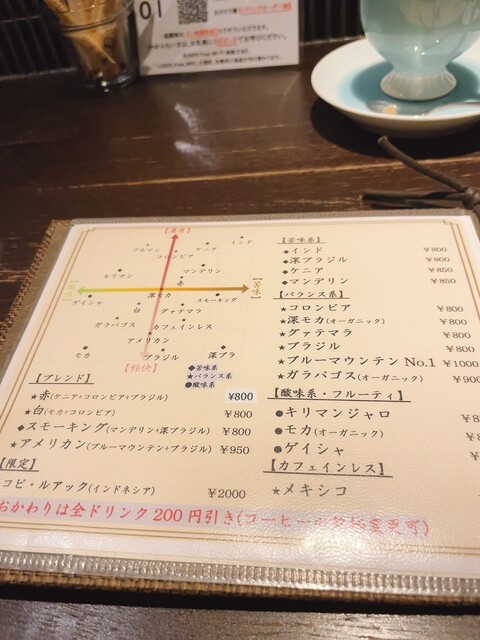 01
【濃厚】
ブルマン
ケニア
インド
コロンビア
キリマン
マンデリン
赤
【苦味】
深モカ
スモーキング
ゲイシャ
白
グァテマラ
ガラパゴス
カフェインレス
アメリカン
モカ
ブラジル
深ブラ
【軽快】
◆苦味系
★バランス系
●酸味系
【ブレンド】
★赤(ケニア+コロンビア+ブラジル) ¥800
★白(モカ+コロンビア) ¥800
◆スモーキング(マンデリン+深ブラジル) ¥800
★アメリカン(ブルーマウンテン+ブラジル) ¥950
【限定】
コピ・ルアック(インドネシア) ¥2000
【苦味系】
◆インド ¥800
◆深ブラジル ¥800
◆ケニア ¥850
◆マンデリン ¥850
【バランス系】
★コロンビア ¥800
★深モカ(オーガニック) ¥800
★グァテマラ ¥800
★ブラジル ¥800
★ブルーマウンテン No.1 ¥1000
★ガラパゴス(オーガニック) ¥900
【酸味系・フルーティ】
●キリマンジャロ
●モカ(オーガニック)
●ゲイシャ
【カフェインレス】
★メキシコ
おかわりは全ドリンク200円引き(コーヒーの